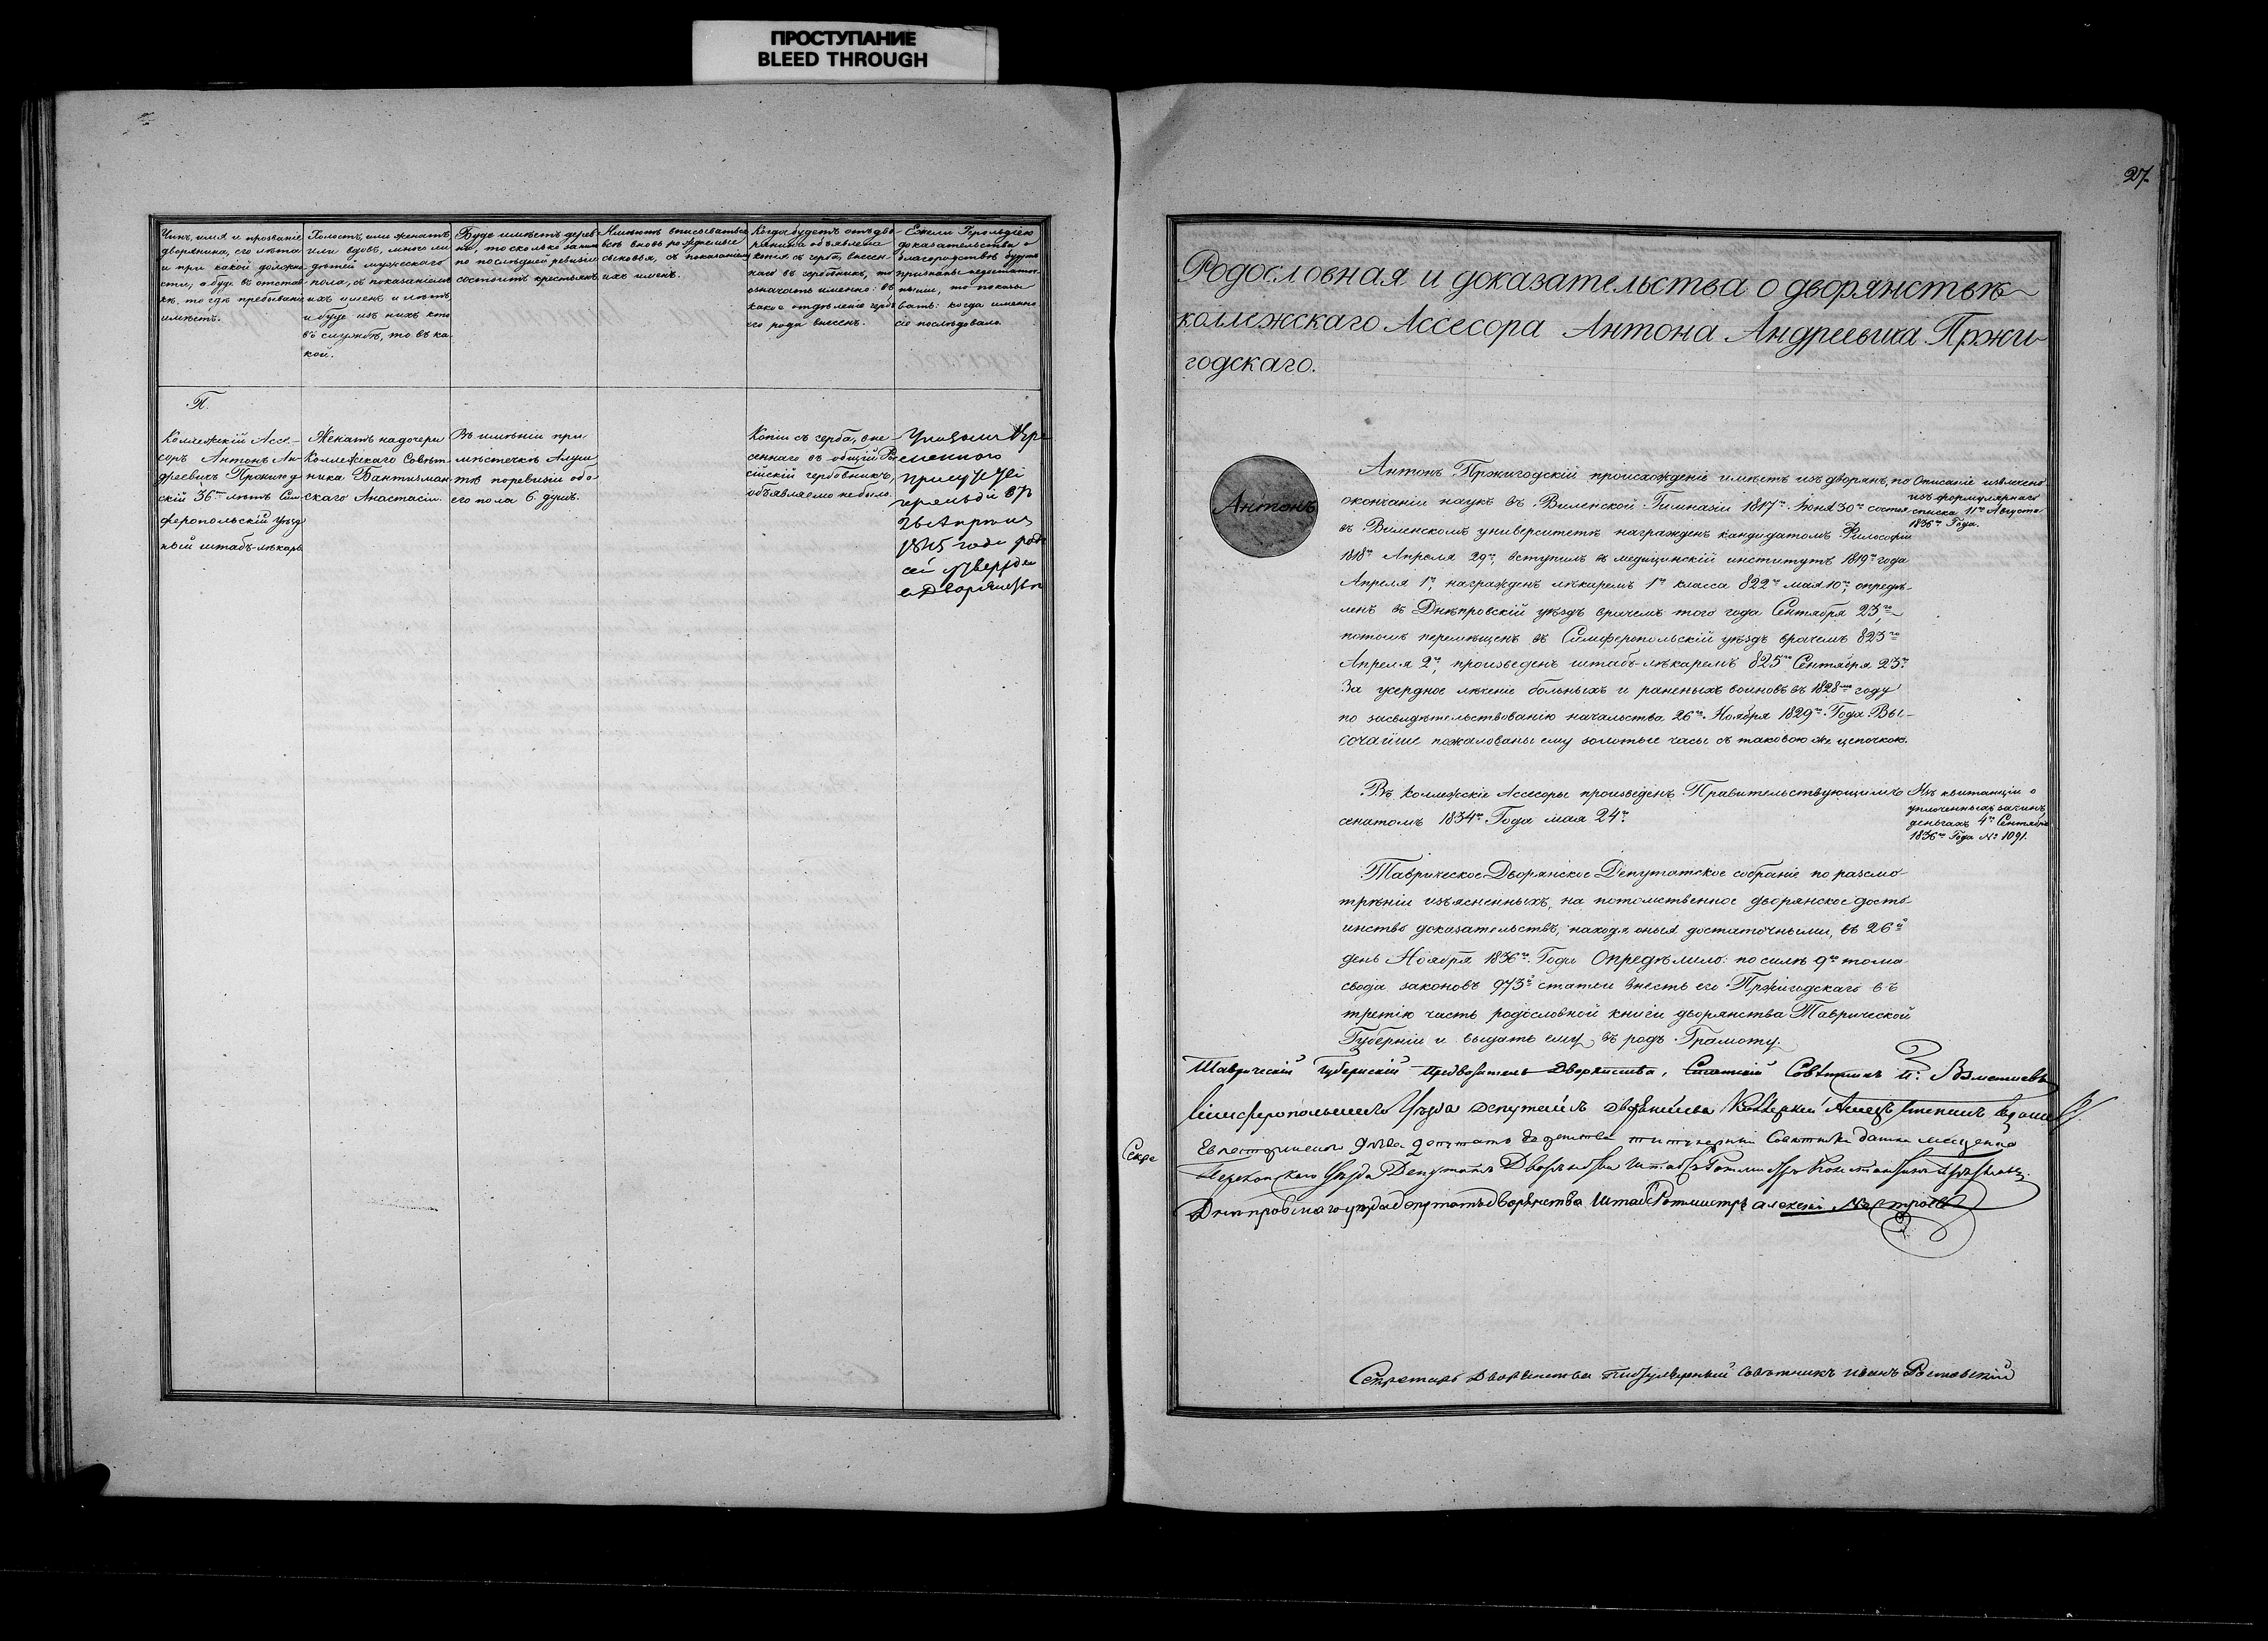 ПРОСТУПАНИЕ
BLEED THROUGH
Чинъ, имя и прозваніе
дворянина, его лѣта
и при какой должно-
сти, а буде въ отстав
кѣ, то гдѣ пребываніе
имѣетъ.
Холостъ, или женатъ
или вдовъ, много ли
дѣтей мужескаго
пола, съ показаніемъ
ихъ именъ и лѣтъ,
и буде изъ нихъ кто
въ службѣ, то въ ка
кой.
Буде имѣетъ дерев
ни, то сколько за ним
по послѣдней ревизіи
состоитъ крестьянъ.
Имѣютъ вписываться
всѣ вновь рожденные
сыновья, съ показаніемъ
ихъ именъ.
Когда будетъ отъ дво
рянина объявлена
копія съ герба, внесен-
наго въ гербовникъ, то
означать именно: въ
какое отдѣленіе гербъ
его рода внесенъ.
Ежели Герольдіею
доказательства о
благородствѣ будутъ
признаны недостаточ
ными, то показы
вать: когда именно
сіе послѣдовало.
П.
Коллежскій Ассе-
соръ Антонъ Ан-
дреевичъ Пржигод
скій 36ти лѣтъ Сим
феропольскій уѣзд
ный штабъ-лѣкарь
Женатъ на дочери
Коллежскаго Совѣт-
ника Бантизман
скаго Анастасіи.
Въ имѣніи при
мѣстечкѣ Алуш
тѣ по ревизіи обо
его пола 6. душъ.
Копіи съ герба, вне
сеннаго въ общій Рос
сійскій гербовникъ,
объявляемо не было.
Указомъ Вре
меннаго
Апрѣля
1845 года родъ
сей утвержден
в Дворянствѣ
27.
Родословная и доказательства о дворянствѣ
коллежскаго Ассесора Антона Андреевича Пржи
годскаго.
Антонъ
Антонъ Пржигодскій происхожденіе имѣетъ изъ дворянъ, по
окончаніи наукъ въ Виленской Гимназіи 1817го Іюня 30го состоя
въ Виленскомъ университетѣ награжденъ кандидатомъ Философіи
1818го Апреля 29го, вступилъ въ медицинскій институтъ 1819го года
Апреля 1го, награжденъ лѣкаремъ 1го класса 822го мая 10го, опредѣ-
ленъ въ Днѣпровскій уѣздъ врачемъ того года Сентября 23го,
потомъ перемѣщенъ въ Симферопольскій уѣздъ врачемъ 823го
Апреля 2го, произведенъ штабъ-лѣкаремъ 825го Сентября 23го.
За усердное лѣченіе больныхъ и раненыхъ воиновъ въ 1828мъ году
по засвидѣтельствованію начальства 26го Ноября 1829го Года Вы-
сочайше пожалованы ему золотые часы съ таковою же цепочкою.
Описаніе извлечено
изъ формулярнаго
списка 11го Августа
1836го Года.
Въ коллежскіе Ассесоры произведенъ Правительствующимъ
сенатомъ 1834го Года мая 24го.
Изъ квитанціи о
уплоченныхъ за чинъ
деньгахъ 4го Сентября
1836го Года № 1091.
Таврическое Дворянское Депутатское собраніе по разсмо-
трѣніи изъясненныхъ, на потомственное дворянское досто-
инство доказательствъ, находя оныя достаточными, въ 26й
день Ноября 1836го Года Опредѣлило: по силѣ 9го тома
свода законовъ 973й статьи внесть его Пржигодскаго въ
третію часть родословной книги дворянства Таврической
Губерніи и выдать ему, въ родъ Грамоту.
Таврическій Губернскій Предводитель Дворянства, Статскій Совѣтникъ
Симферопольскаго Уѣзда Депутатъ Дворянства
Евпаторійскаго уѣзда депутатъ дворянства титулярный Совѣтникъ
Секре
Перекопскаго Уѣзда Депутатъ Дворянства Штабъ Ротмистръ Константинъ
Днѣпровскаго уѣзда депутатъ дворянства Штабъ Ротмистръ Алексѣй
Секретарь Дворянства Титулярный Совѣтникъ Иванъ Ростовскій